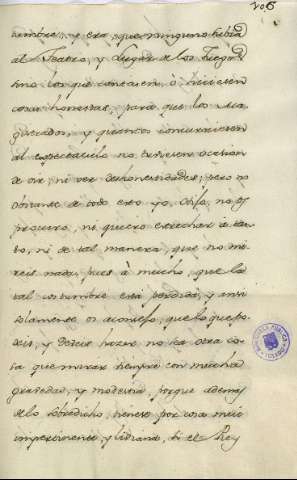 106
tumbre, y era, que ninguno hebia
al Teatro, y Lugar de los Juegos
sino los que contasen, ò hiciesen
cosas honestas, para que los Ma
gistrados, y quantos concurriesen
al espectaculo no tubiesen ocasion
de oir, ni ver deshonestidades; pero no
obstante de todo esto yo, no os
procuro, ni quiero estrechar à tan
to, ni de tal manera, que no mi
reis nada, pues à mucho, que la
tal costumbre està perdida, y anti
solamente os aconsejo, que lo que po
deis, y debeis hacer no es otra co
sa que mirar siempre con mucha
gravedad, y modestia, porque ademas
de lo sobredicho, tienese por cosa mui
impertinente, y liviana, si el Rey
TOLEDO